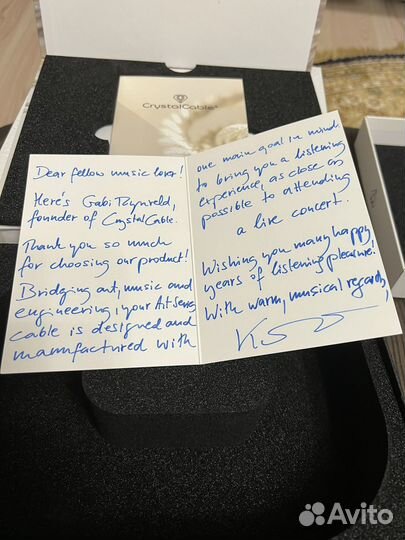 CrystalCable®
Dear fellow music lover!
Here's Gabi Rynveld,
founder of CrystalCable.
Thank you so much
for choosing our product!
Bridging art, music and
engineering, your Art Series
cable is designed and
manufactured with
one main goal in mind:
to bring you a listening
experience, as close as
possible to attending
a live concert.
Wishing you many happy
years of listening pleasure!
With warm, musical regards,
Avito